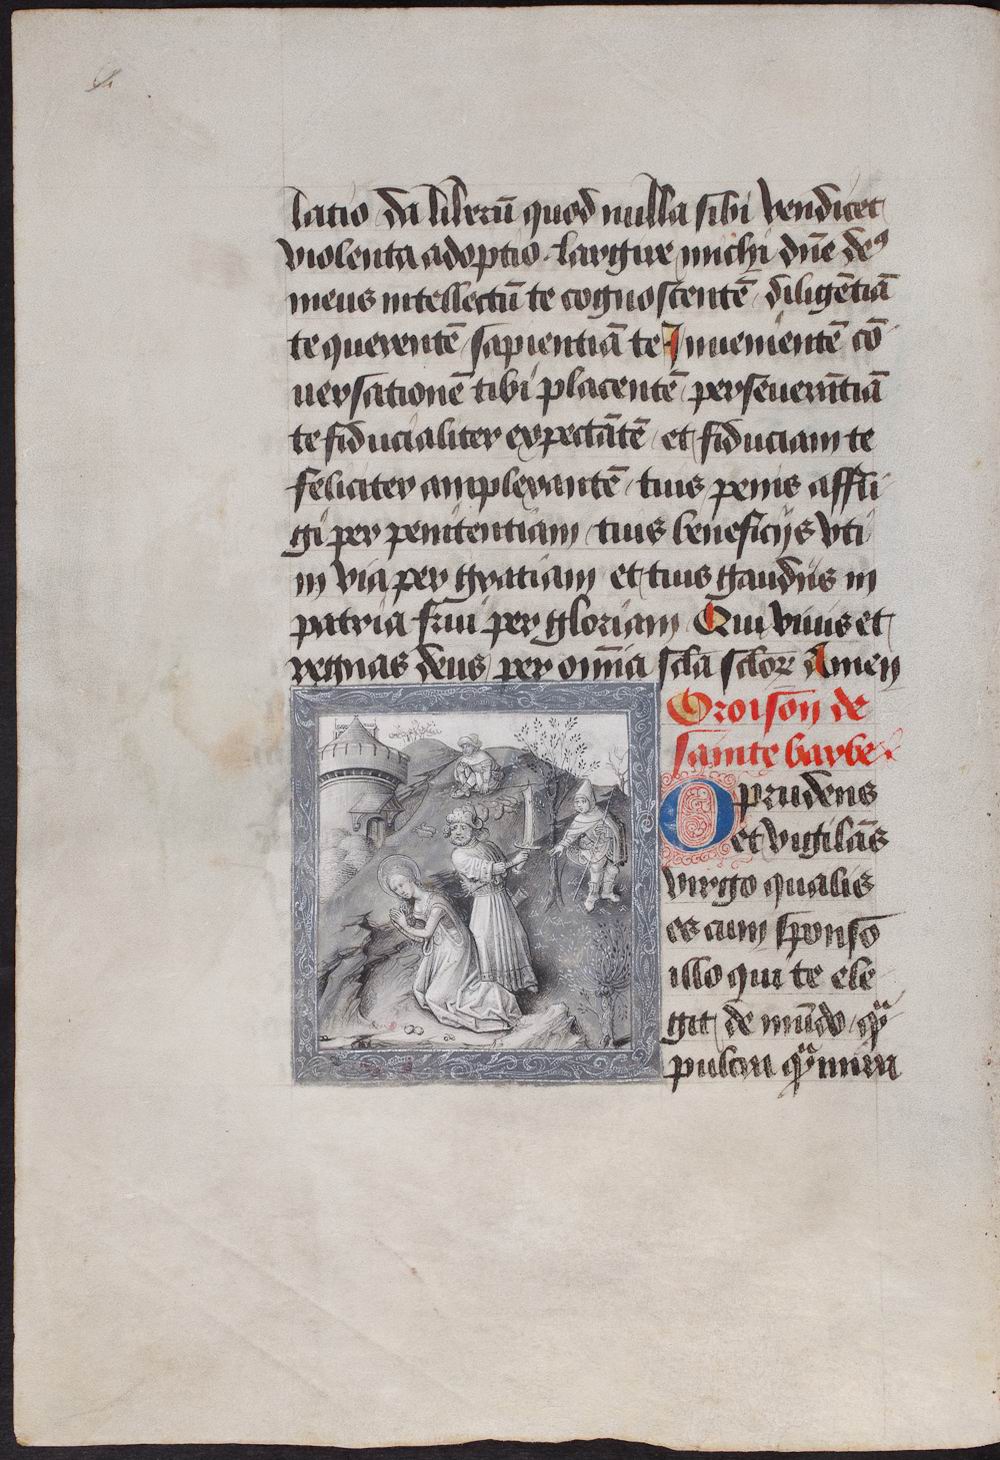 latio da liberū quod nulla sibi vendicet
violenta adoptio. largire michi dn̄e deꝰ
meus intellectū te cognoscentē diligētiā
te querentē sapientiā te Inuenientē cō
uersationē tibi placentē perseuerātiā
te fiducialiter expectātē et fiduciam te
feliciter amplexantē tuis penis affli
gi per penitentiam tuis beneficijs vti
in via per gratiam et tuis gaudijs in
patria frui per gloriam Qui viuis et
regnas deus per om̄ia scl̄a scl̄oꝝ Amen
Oroison de
sainte barbe
O prudens
et vigilās
virgo qualis
es cum sponso
illo qui te ele
git de mūdo
pulcra